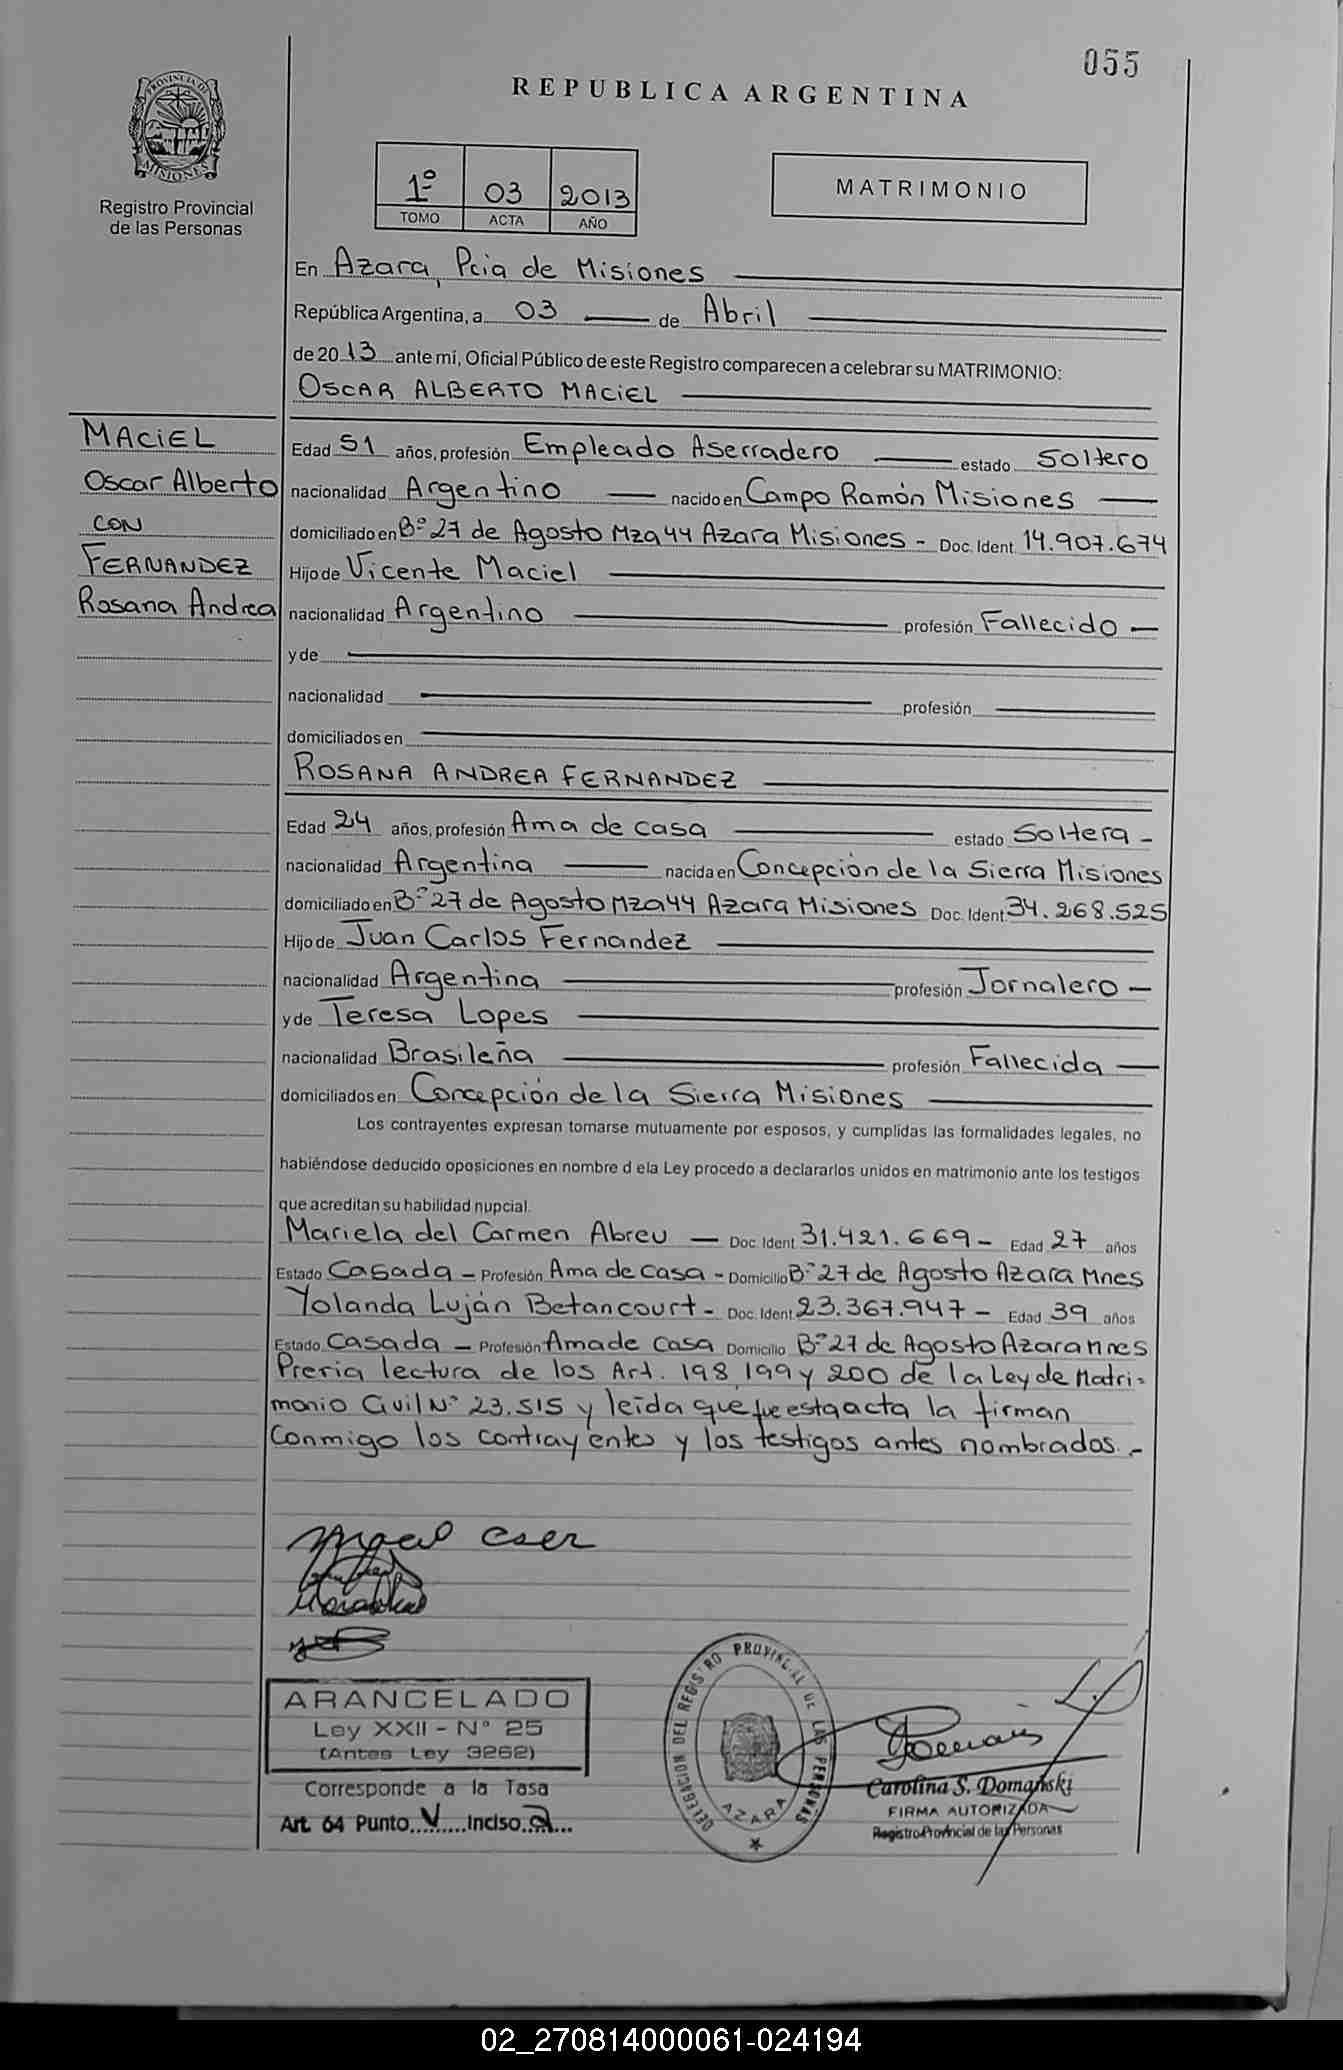 055
REPUBLICA ARGENTINA
PROVINCIA DE MISIONES
Registro Provincial
de las Personas
1º 03 2013
TOMO ACTA AÑO
MATRIMONIO
En Azara, Pcia de Misiones
República Argentina, a 03 de Abril
de 2013 ante mí, Oficial Público de este Registro comparecen a celebrar su MATRIMONIO:
OSCAR ALBERTO MACIEL
MACIEL
Oscar Alberto
CON
FERNANDEZ
Rosana Andrea
Edad 51 años, profesión Empleado Aserradero estado Soltero
nacionalidad Argentino nacido en Campo Ramón Misiones
domiciliado en Bº 27 de Agosto Mza 44 Azara Misiones - Doc. Ident. 14.907.674
Hijo de Vicente Maciel
nacionalidad Argentino profesión Fallecido
y de
nacionalidad profesión
domiciliados en
ROSANA ANDREA FERNANDEZ
Edad 24 años, profesión Ama de casa estado Soltera -
nacionalidad Argentina nacida en Concepción de la Sierra Misiones
domiciliado en Bº 27 de Agosto Mza 44 Azara Misiones Doc. Ident. 34.268.525
Hijo de Juan Carlos Fernandez
nacionalidad Argentina profesión Jornalero -
y de Teresa Lopes
nacionalidad Brasileña profesión Fallecida
domiciliados en Concepción de la Sierra Misiones
Los contrayentes expresan tomarse mutuamente por esposos, y cumplidas las formalidades legales, no
habiéndose deducido oposiciones en nombre d ela Ley procedo a declararlos unidos en matrimonio ante los testigos
que acreditan su habilidad nupcial.
Mariela del Carmen Abreu - Doc. Ident. 31.421.669 - Edad 27 años
Estado Casada - Profesión Ama de casa - Domicilio Bº 27 de Agosto Azara Mnes
Yolanda Luján Betancourt - Doc. Ident. 23.367.947 - Edad 39 años
Estado Casada - Profesión Ama de casa Domicilio Bº 27 de Agosto Azara Mnes
Previa lectura de los Art. 198, 199 y 200 de la Ley de Matri-
monio Civil Nº 23.515 y leída que fue esta acta la firman
Conmigo los contrayentes y los testigos antes nombrados. -
ARANCELADO
Ley XXII - Nº 25
(Antes Ley 3262)
Corresponde a la Tasa
Art. 64 Punto V Inciso a
DELEGACION DEL REGISTRO PROVINCIAL DE LAS PERSONAS
AZARA
Carolina S. Domański
FIRMA AUTORIZADA
Registro Provincial de las Personas
02_270814000061-024194